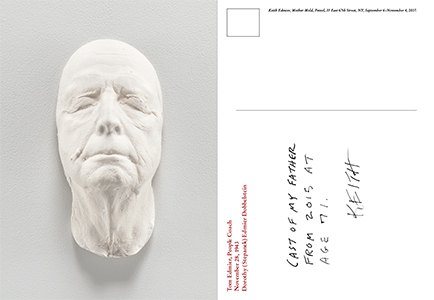 Keith Edmier, Mother Mold, Petzel, 35 East 67th Street, NY, September 6–November 4, 2017.
Tom Edmier, People Coach
November 28, 1943
Dorothy (Stepanek) Edmier Dobbelstein
CAST OF MY FATHER
FROM 2015 AT
AGE 71.
KEITH